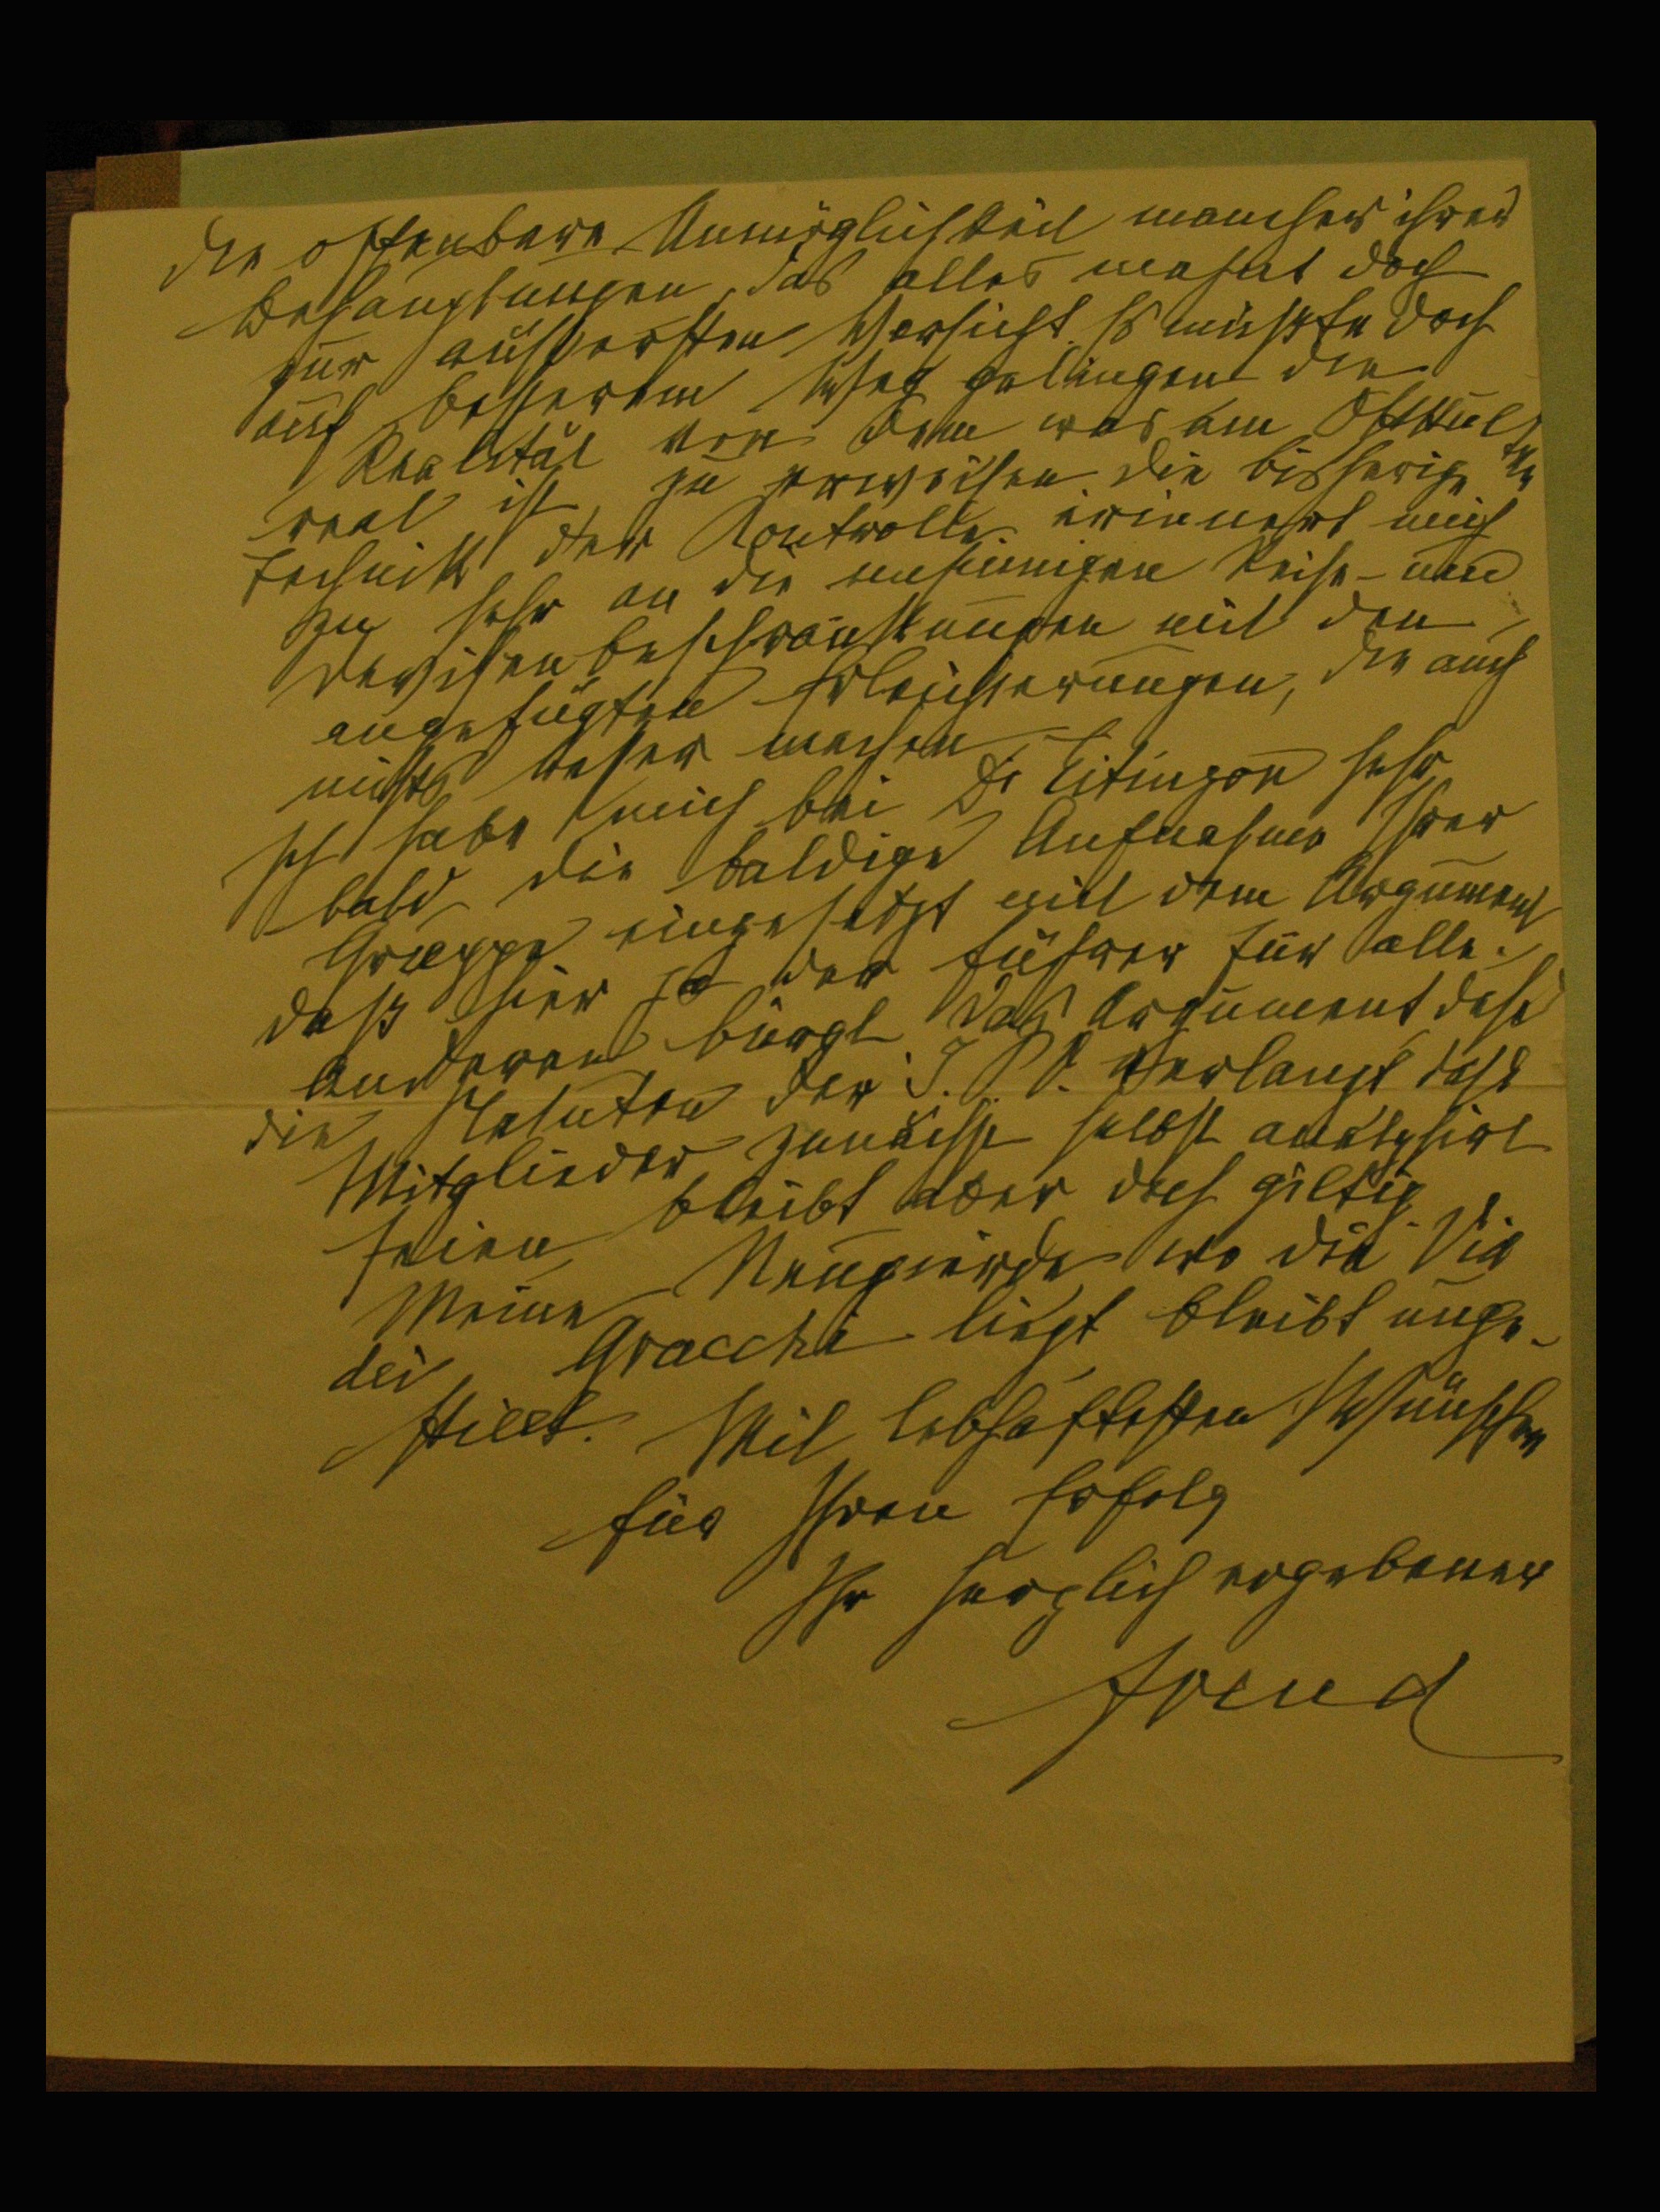 die offenbare Unmöglichkeit mancher ihrer
Behauptungen, das alles mahnt doch
zur äussersten Vorsicht. Es müsste doch
auf besserem Weg gelingen die
Realität von dem was am Okkulten
real ist zu erweisen. Die bisherige
Technik der Kontrolle erinnert mich
zu sehr an die unsinnigen Reise- und
Devisenbeschränkungen mit den
angefügten Erleichterungen, die auch
nichts besser machen.
Ich habe mich bei Dr Eitingon sehr
bald die baldige Aufnahme Ihrer
Gruppe eingesetzt mit dem Argument
daß hier ja der Führer für alle
anderen bürgt. Das Argument dass
die Statuten der I. P. V. verlangt dass
Mitglieder zunächst selbst analysirt
seien bleibt aber doch giltig.
Meine Neugierde wo die Via
dei Gracchi liegt bleibt unge-
stillt. Mit lebhaftesten Wünschen
für Ihren Erfolg
Ihr herzlich ergebener
Freud